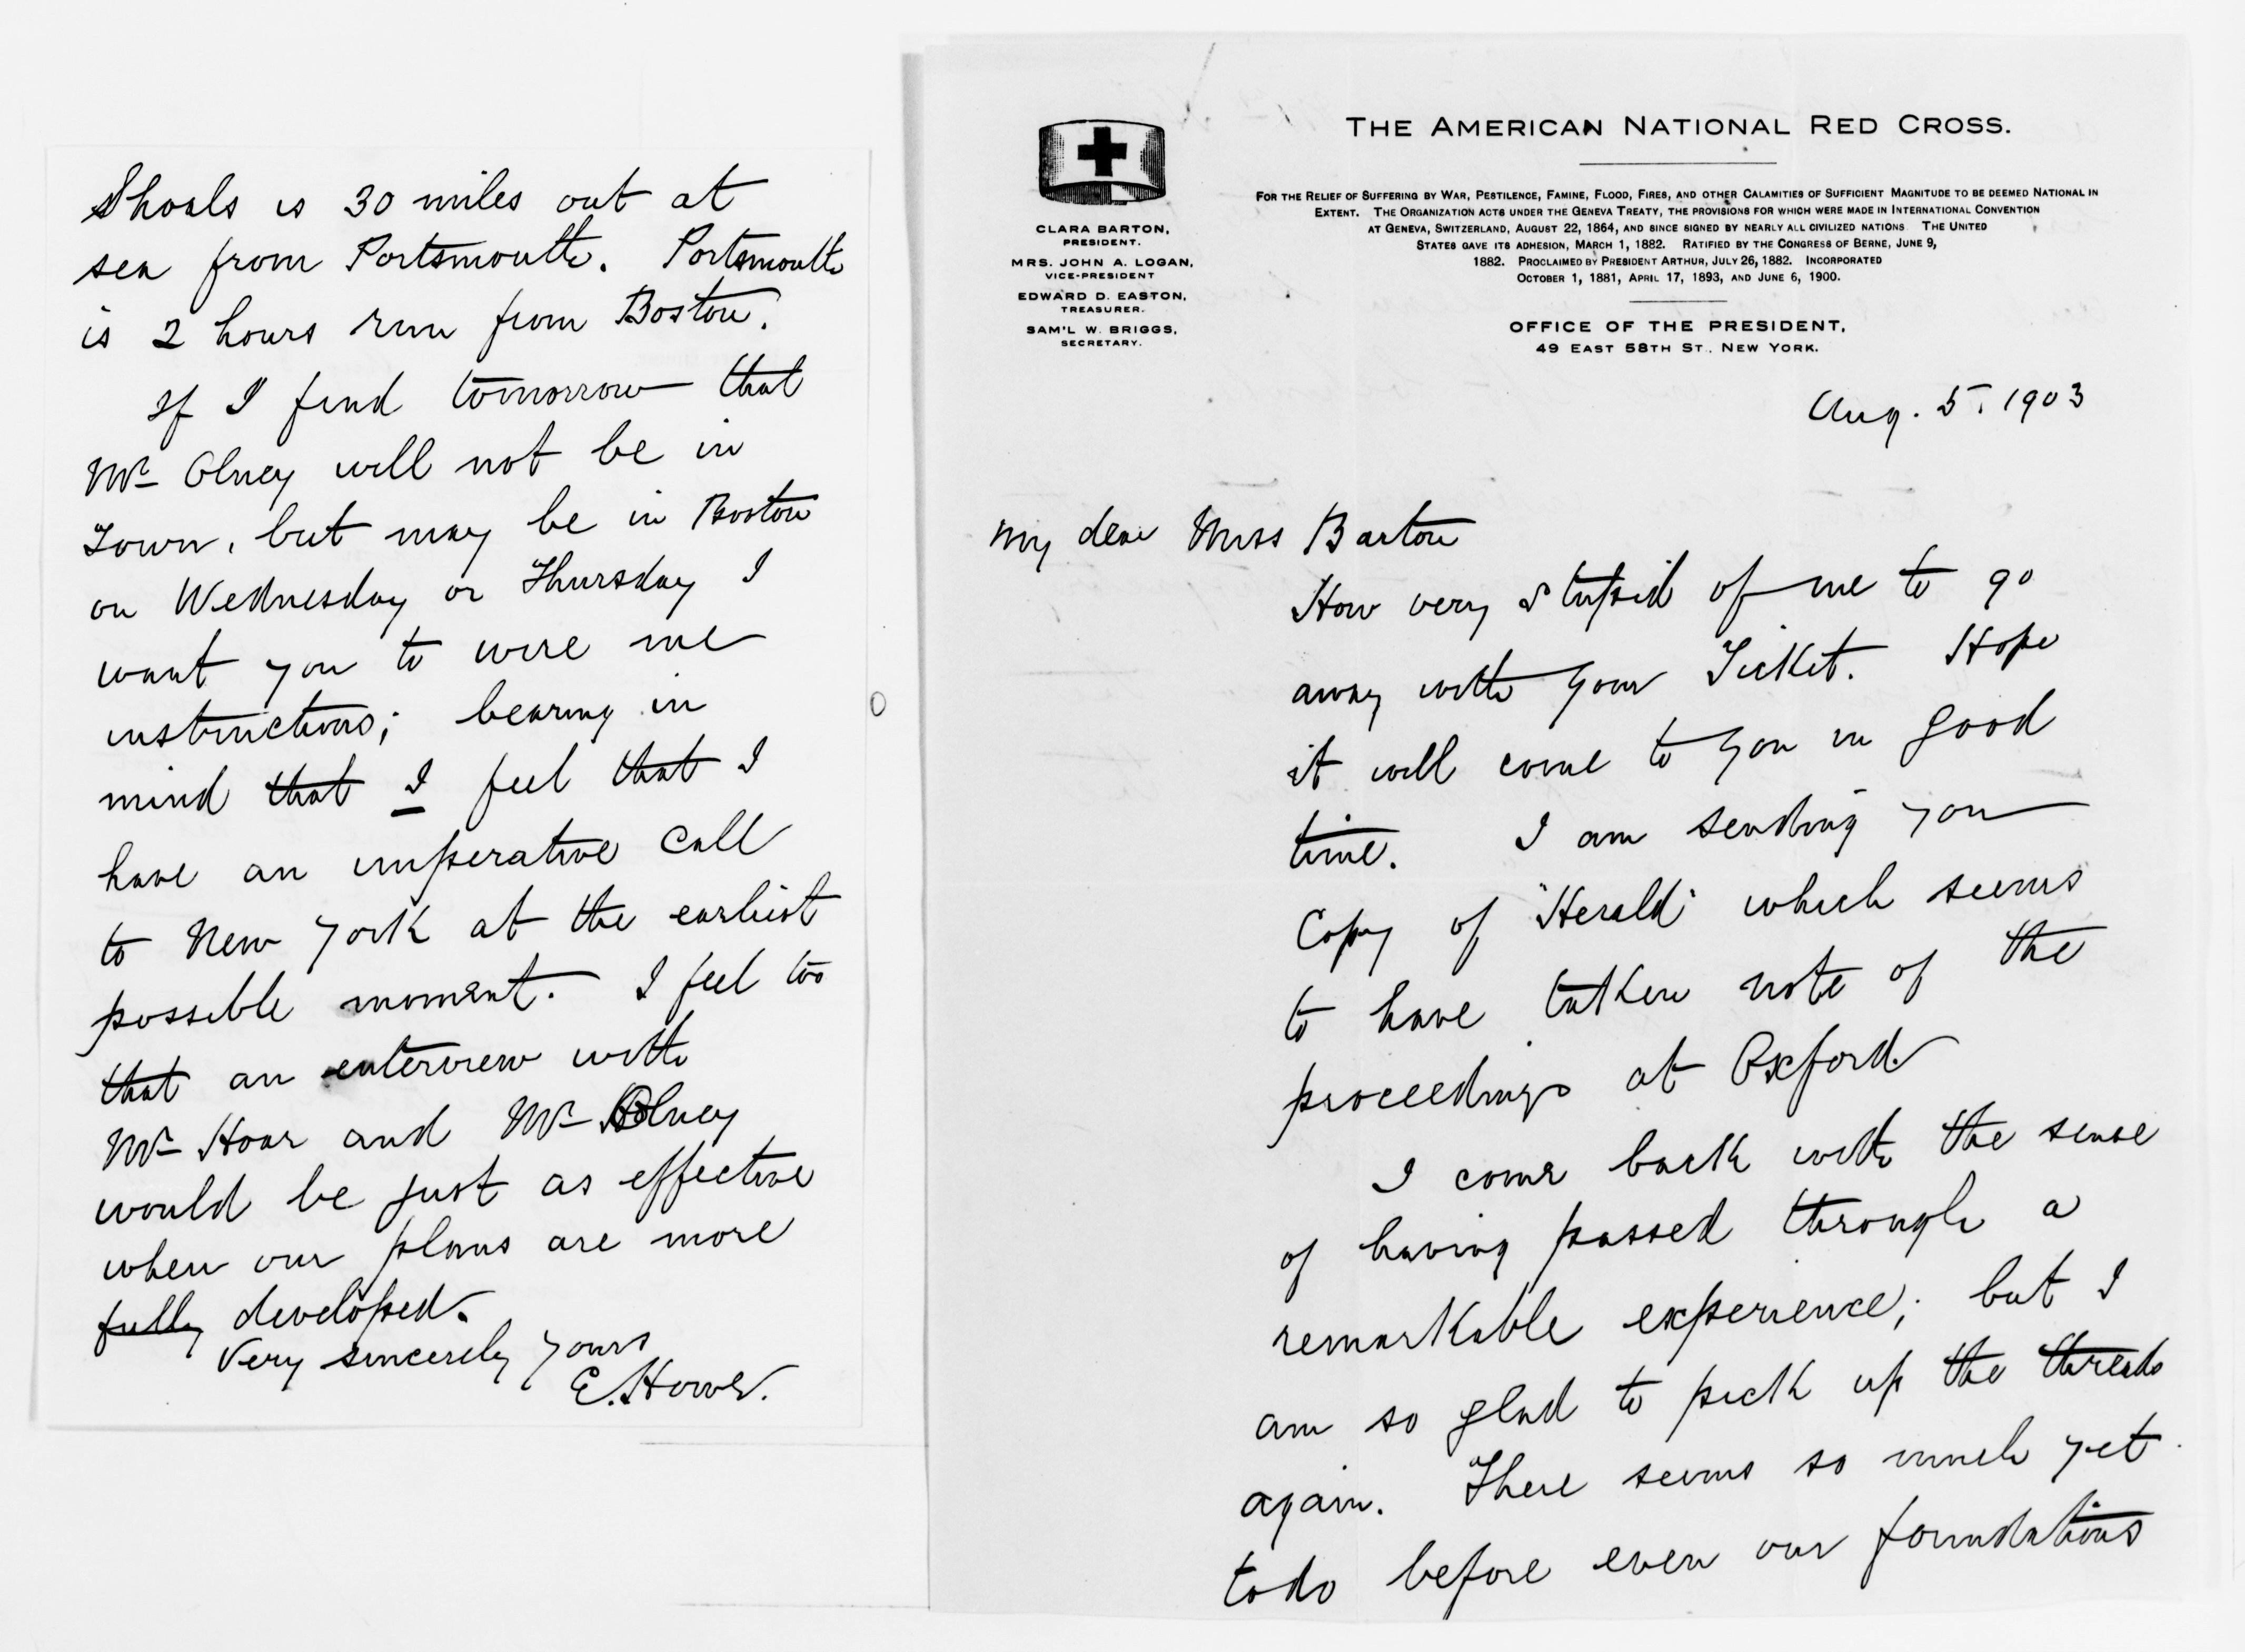 Shoals is 30 miles out at
sea from Portsmouth. Portsmouth
is 2 hours run from Boston.
If I find tomorrow that
Mr Olney will not be in
Town, but may be in Boston
on Wednesday or Thursday I
want you to wire me
instructions; bearing in
mind that I feel that I
have an imperative call
to New York at the earliest
possible moment. I feel too
that an interview with
Mr Hoar and Mr Olney
would be just as effective
when our plans are more
fully developed.
Very sincerely yours
E. Howe.
THE AMERICAN NATIONAL RED CROSS.
FOR THE RELIEF OF SUFFERING BY WAR, PESTILENCE, FAMINE, FLOOD, FIRES, AND OTHER CALAMITIES OF SUFFICIENT MAGNITUDE TO BE DEEMED NATIONAL IN
EXTENT. THE ORGANIZATION ACTS UNDER THE GENEVA TREATY, THE PROVISIONS FOR WHICH WERE MADE IN INTERNATIONAL CONVENTION
AT GENEVA, SWITZERLAND, AUGUST 22, 1864, AND SINCE SIGNED BY NEARLY ALL CIVILIZED NATIONS THE UNITED
STATES GAVE ITS ADHESION, MARCH 1, 1882. RATIFIED BY THE CONGRESS OF BERNE, JUNE 9,
1882. PROCLAIMED BY PRESIDENT ARTHUR, JULY 26, 1882. INCORPORATED
OCTOBER 1, 1881, APRIL 17, 1893, AND JUNE 6, 1900.
CLARA BARTON,
PRESIDENT.
MRS. JOHN A. LOGAN,
VICE-PRESIDENT
EDWARD D. EASTON,
TREASURER.
SAM'L W. BRIGGS,
SECRETARY.
OFFICE OF THE PRESIDENT,
49 EAST 58TH ST., NEW YORK.
Aug. 5. 1903
My dear Miss Barton
How very stupid of me to go
away with your Ticket. Hope
it will come to you in good
time. I am sending you
Copy of "Herald" which seems
to have taken note of the
proceedings at Oxford
I come back with the sense
of having passed through a
remarkable experience; but I
am so glad to pick up the threads
again. There seems so much yet
to do before even our foundations